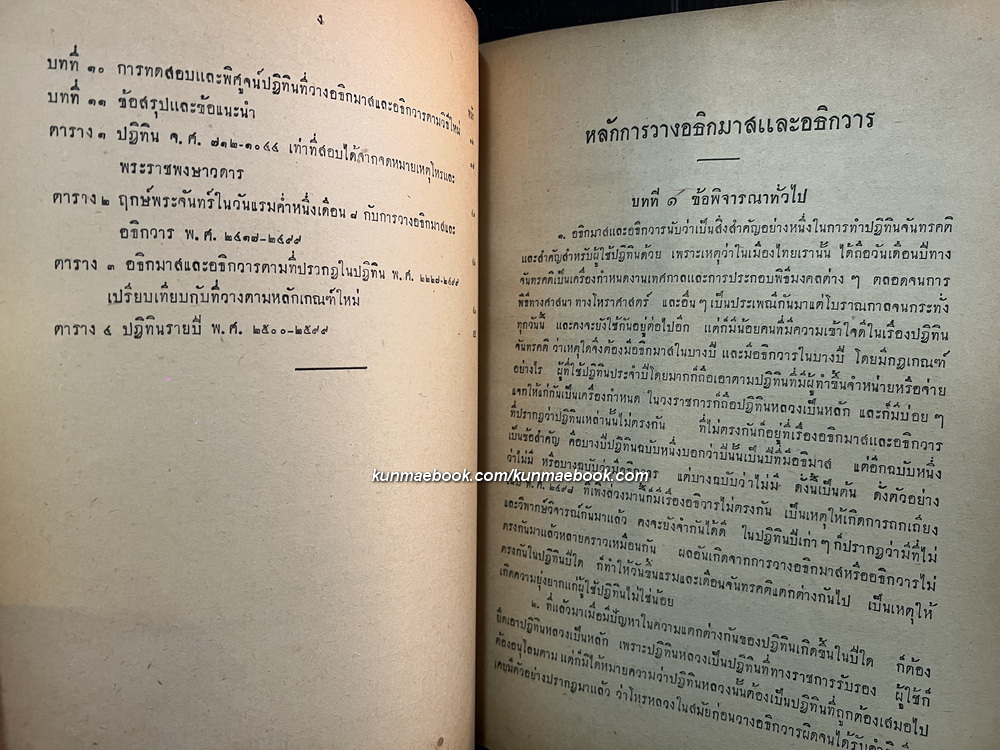 ง
บทที่ ๑๐ การทดสอบและพิศูจน์ปฏิทินที่วางอธิกมาสและอธิกวารตามวิธีใหม่
บทที่ ๑๑ ข้อสรุปและข้อแนะนำ
ตาราง ๑ ปฏิทิน จ.ศ. ๗๑๒-๑๐๔๔ เท่าที่สอบได้จากจดหมายเหตุโหรและ
พระราชพงษาวดาร
ตาราง ๒ ฤกษ์พระจันทร์ในวันแรมค่ำหนึ่งเดือน ๘ กับการวางอธิกมาสและ
อธิกวาร พ.ศ. ๒๔๑๗-๒๔๙๙
ตาราง ๓ อธิกมาสและอธิกวารตามที่ปรากฏในปฏิทิน พ.ศ. ๒๒๒๗-๒๔๙๙
เปรียบเทียบกับที่วางตามหลักเกณฑ์ใหม่
ตาราง ๔ ปฏิทินรายปี พ.ศ. ๒๕๐๐-๒๕๙๙
หลักการวางอธิกมาสและอธิกวาร
บทที่ ๑ ข้อพิจารณาทั่วไป
๑. อธิกมาสและอธิกวารนับว่าเป็นสิ่งสำคัญอย่างหนึ่งในการทำปฏิทินจันทรคติ
และสำคัญสำหรับผู้ใช้ปฏิทินด้วย เพราะเหตุว่าในเมืองไทยเรานั้น ได้ถือวันเดือนปีทาง
จันทรคติเป็นเครื่องกำหนดงานเทศกาลและการประกอบพิธีมงคลต่าง ๆ ตลอดจนการ
พิธีทางศาสนา ทางโหราศาสตร์ และอื่น ๆ เป็นประเพณีกันมาแต่โบราณกาลจนกระทั่ง
ทุกวันนี้ และคงจะยังใช้กันอยู่ต่อไปอีก แต่ก็มีน้อยคนที่มีความเข้าใจดีในเรื่องปฏิทิน
จันทรคติ ว่าเหตุใดจึงต้องมีอธิกมาสในบางปี และมีอธิกวารในบางปี โดยมีกฎเกณฑ์
อย่างไร ผู้ที่ใช้ปฏิทินประจำปีโดยมากก็ถือเอาตามปฏิทินที่มีผู้ทำขึ้นจำหน่ายหรือจ่าย
แจกให้แก่กันเป็นเครื่องกำหนด ในวงราชการก็ถือปฏิทินหลวงเป็นหลัก และก็มีบ่อย ๆ
ที่ปรากฏว่าปฏิทินเหล่านั้นไม่ตรงกัน ที่ไม่ตรงกันก็อยู่ที่เรื่องอธิกมาสและอธิกวาร
เป็นข้อสำคัญ คือบางปีปฏิทินฉบับหนึ่งบอกว่าปีนั้นเป็นปีที่มีอธิมาส แต่อีกฉบับหนึ่ง
ว่าไม่มี หรือบางฉบับว่ามีอธิกวาร แต่บางฉบับว่าไม่มี ดังนี้เป็นต้น ดังตัวอย่าง
kunmaebook.com/kunmaebook.com
พ.ศ. ๒๔๙๘ ที่เพิ่งล่วงมานี้ก็มีเรื่องอธิกวารไม่ตรงกัน เป็นเหตุให้เกิดการถกเถียง
และวิพากษ์วิจารณ์กันมาแล้ว คงจะยังจำกันได้ดี ในปฏิทินปีเก่า ๆ ก็ปรากฏว่ามีที่ไม่
ตรงกันมาแล้วหลายคราวเหมือนกัน ผลอันเกิดจากการวางอธิกมาสหรืออธิกวารไม่
ตรงกันในปฏิทินปีใด ก็ทำให้วันขึ้นแรมและเดือนจันทรคติแตกต่างกันไป เป็นเหตุให้
เกิดความยุ่งยากแก่ผู้ใช้ปฏิทินไม่ใช่น้อย
๒. ที่แล้วมาเมื่อมีปัญหาในความแตกต่างกันของปฏิทินเกิดขึ้นในปีใด ก็ต้อง
ยึดเอาปฏิทินหลวงเป็นหลัก เพราะปฏิทินหลวงเป็นปฏิทินที่ทางราชการรับรอง ผู้ใช้ก็
ต้องอนุโลมตาม แต่ก็มิได้หมายความว่าปฏิทินหลวงนั้นต้องเป็นปฏิทินที่ถูกต้องเสมอไป
เคยมีตัวอย่างปรากฏมาแล้ว ว่าโหรหลวงในสมัยก่อนวางอธิกวารผิดจนได้รับ